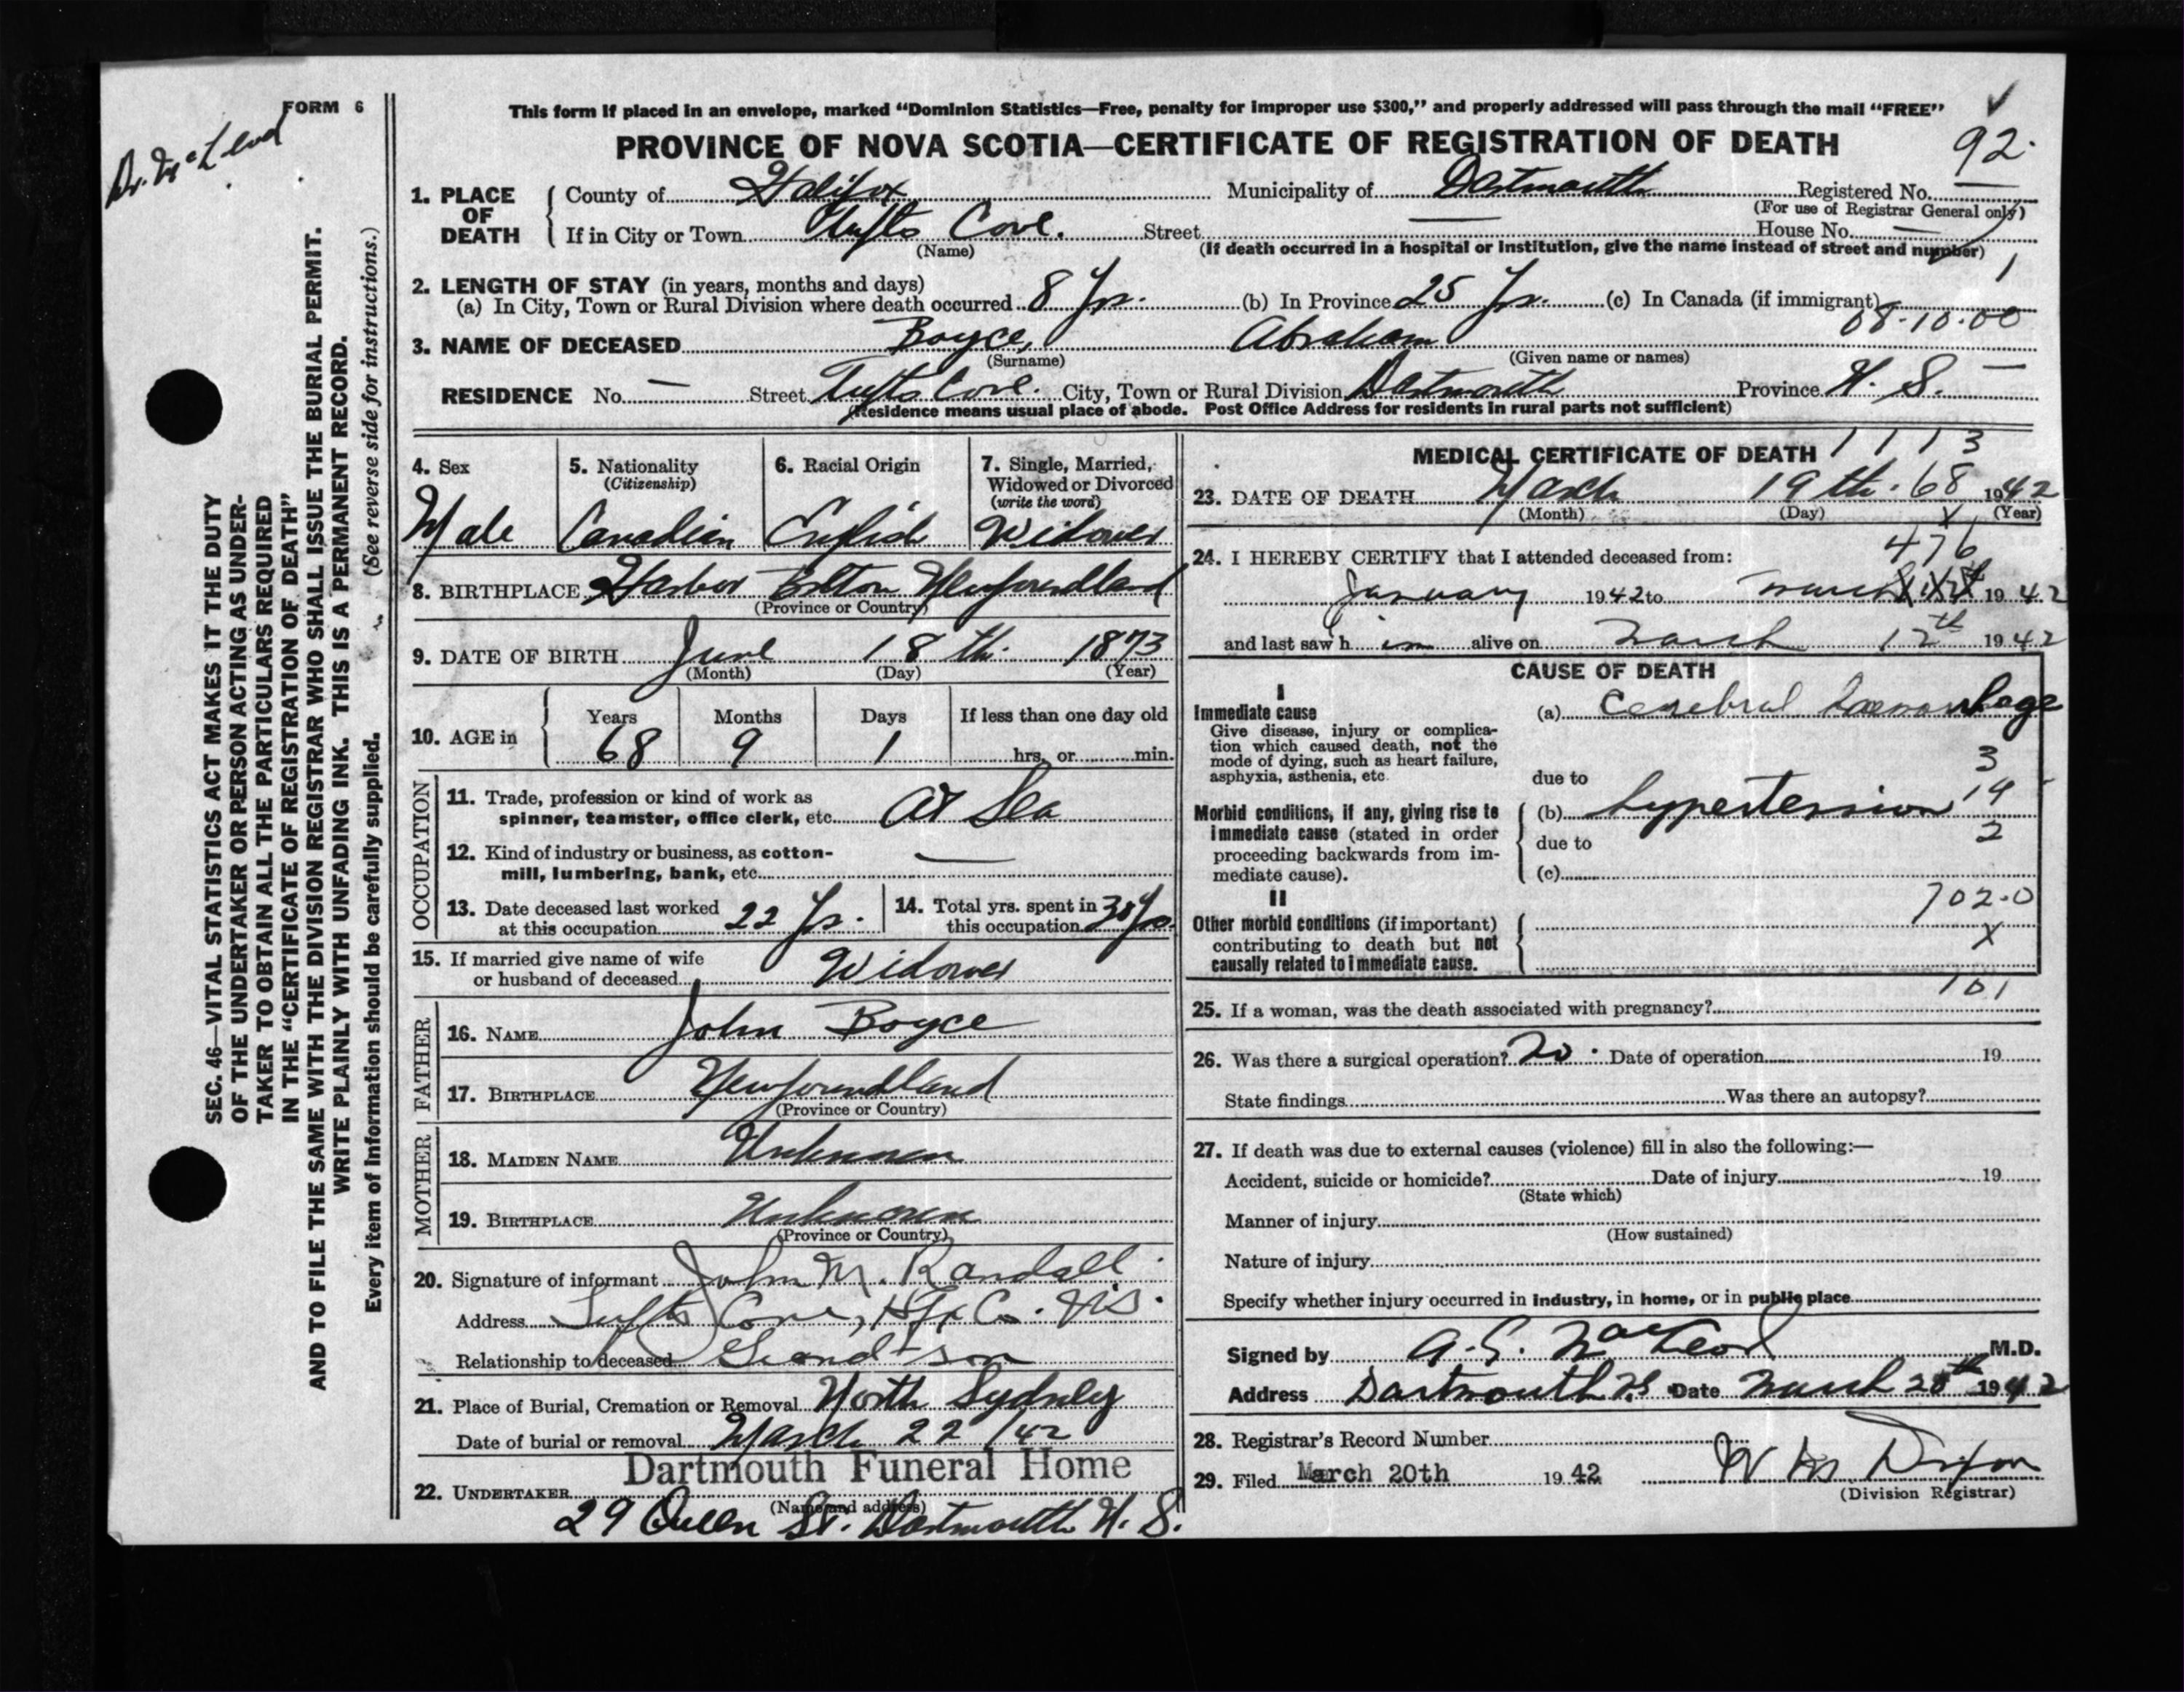 FORM 6
Dr. McLeod
This form if placed in an envelope, marked “Dominion Statistics—Free, penalty for improper use $300,” and properly addressed will pass through the mail “FREE”
PROVINCE OF NOVA SCOTIA—CERTIFICATE OF REGISTRATION OF DEATH
92.
1. PLACE OF DEATH County of Halifax Municipality of Dartmouth Registered No.
(For use of Registrar General only)
If in City or Town Tufts Cove. Street — House No. —
(Name) (If death occurred in a hospital or institution, give the name instead of street and number)
1
2. LENGTH OF STAY (in years, months and days)
(a) In City, Town or Rural Division where death occurred 8 Yr. (b) In Province 25 Yr. (c) In Canada (if immigrant)
08-10.00
3. NAME OF DECEASED Boyce, Abraham
(Surname) (Given name or names)
RESIDENCE No. — Street Tufts Cove. City, Town or Rural Division Dartmouth Province N. S. —
(Residence means usual place of abode. Post Office Address for residents in rural parts not sufficient)
4. Sex 5. Nationality (Citizenship) 6. Racial Origin 7. Single, Married, Widowed or Divorced (write the word)
Male Canadian English Widower
8. BIRTHPLACE Harbor Newfoundland
(Province or Country)
9. DATE OF BIRTH June 18 th. 1873
(Month) (Day) (Year)
10. AGE in Years Months Days If less than one day old
68 9 1 hrs. or min.
OCCUPATION
11. Trade, profession or kind of work as
spinner, teamster, office clerk, etc. At Sea
12. Kind of industry or business, as cotton-
mill, lumbering, bank, etc. —
13. Date deceased last worked at this occupation 22 Yr. 14. Total yrs. spent in this occupation 30 Yrs.
15. If married give name of wife
or husband of deceased Widower
FATHER
16. NAME John Boyce
17. BIRTHPLACE Newfoundland
(Province or Country)
MOTHER
18. MAIDEN NAME Unknown
19. BIRTHPLACE Unknown
(Province or Country)
20. Signature of informant John M. Randall
Address Tufts Cove, Hfx Co. N.S.
Relationship to deceased Grand-son
21. Place of Burial, Cremation or Removal North Sydney
Date of burial or removal March 22 /42
Dartmouth Funeral Home
22. UNDERTAKER
(Name and address)
29 Queen St. Dartmouth N. S.
MEDICAL CERTIFICATE OF DEATH 1 1 1 3
23. DATE OF DEATH March 19 th. 68 1942
(Month) (Day) (Year)
X
476
24. I HEREBY CERTIFY that I attended deceased from:
January 1942 to March 1942
and last saw h im alive on March 12th 1942
CAUSE OF DEATH
I
Immediate cause (a) Cerebral haemorrhage
Give disease, injury or complica-
tion which caused death, not the
mode of dying, such as heart failure,
asphyxia, asthenia, etc.
3
due to
Morbid conditions, if any, giving rise to (b) hypertension 19
immediate cause (stated in order
proceeding backwards from im-
mediate cause).
2
due to
(c)
II
702-0
Other morbid conditions (if important)
contributing to death but not
causally related to immediate cause.
X
101
25. If a woman, was the death associated with pregnancy?
26. Was there a surgical operation? no. Date of operation 19
State findings Was there an autopsy?
27. If death was due to external causes (violence) fill in also the following:—
Accident, suicide or homicide? Date of injury 19
(State which)
Manner of injury
(How sustained)
Nature of injury
Specify whether injury occurred in industry, in home, or in public place
Signed by A. G. MacLeod M.D.
Address Dartmouth NS Date March 20th 1942
28. Registrar's Record Number
29. Filed March 20th 1942
(Division Registrar)
SEC. 46—VITAL STATISTICS ACT MAKES IT THE DUTY
OF THE UNDERTAKER OR PERSON ACTING AS UNDER-
TAKER TO OBTAIN ALL THE PARTICULARS REQUIRED
IN THE “CERTIFICATE OF REGISTRATION OF DEATH”
AND TO FILE THE SAME WITH THE DIVISION REGISTRAR WHO SHALL ISSUE THE BURIAL PERMIT.
WRITE PLAINLY WITH UNFADING INK. THIS IS A PERMANENT RECORD.
Every item of information should be carefully supplied. (See reverse side for instructions.)